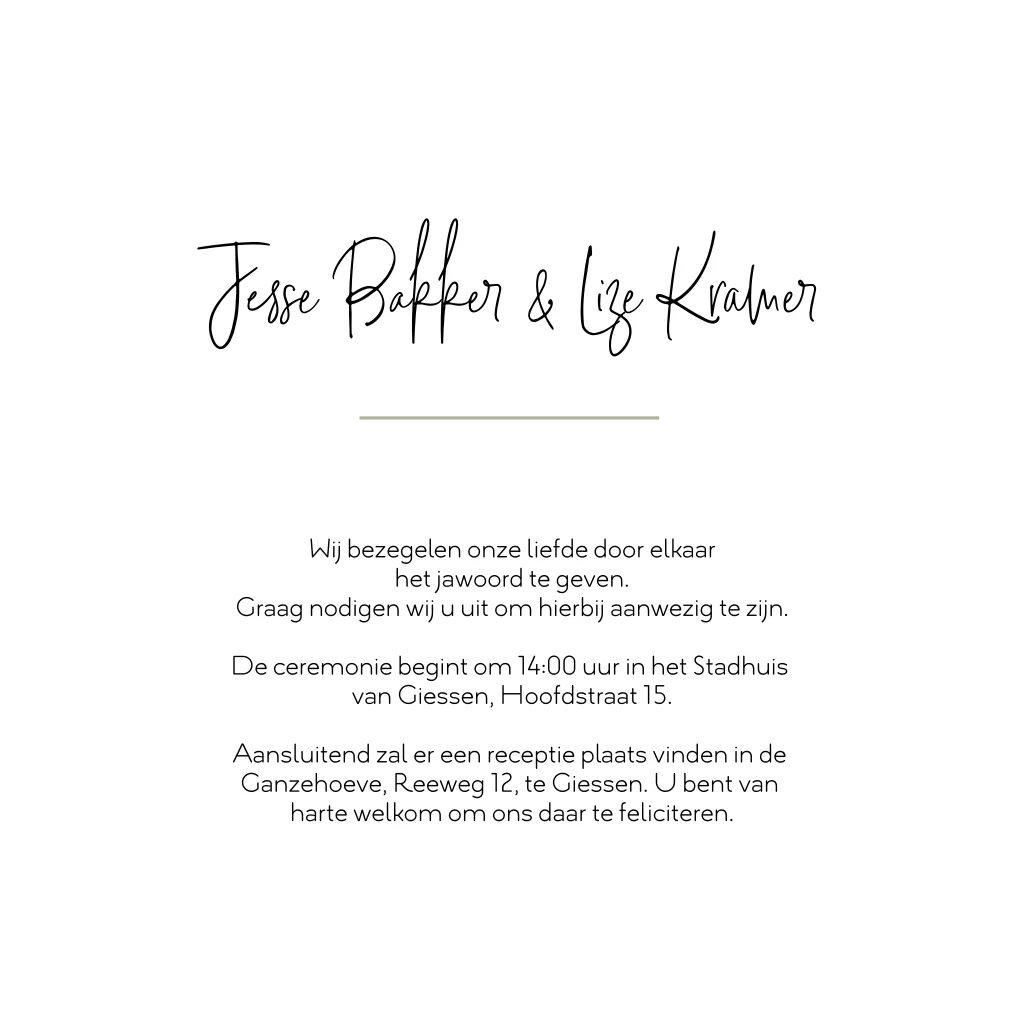 Jesse Bakker & Lize Kramer
Wij bezegelen onze liefde door elkaar
het jawoord te geven.
Graag nodigen wij u uit om hierbij aanwezig te zijn.
De ceremonie begint om 14:00 uur in het Stadhuis
van Giessen, Hoofdstraat 15.
Aansluitend zal er een receptie plaats vinden in de
Ganzehoeve, Reeweg 12, te Giessen. U bent van
harte welkom om ons daar te feliciteren.